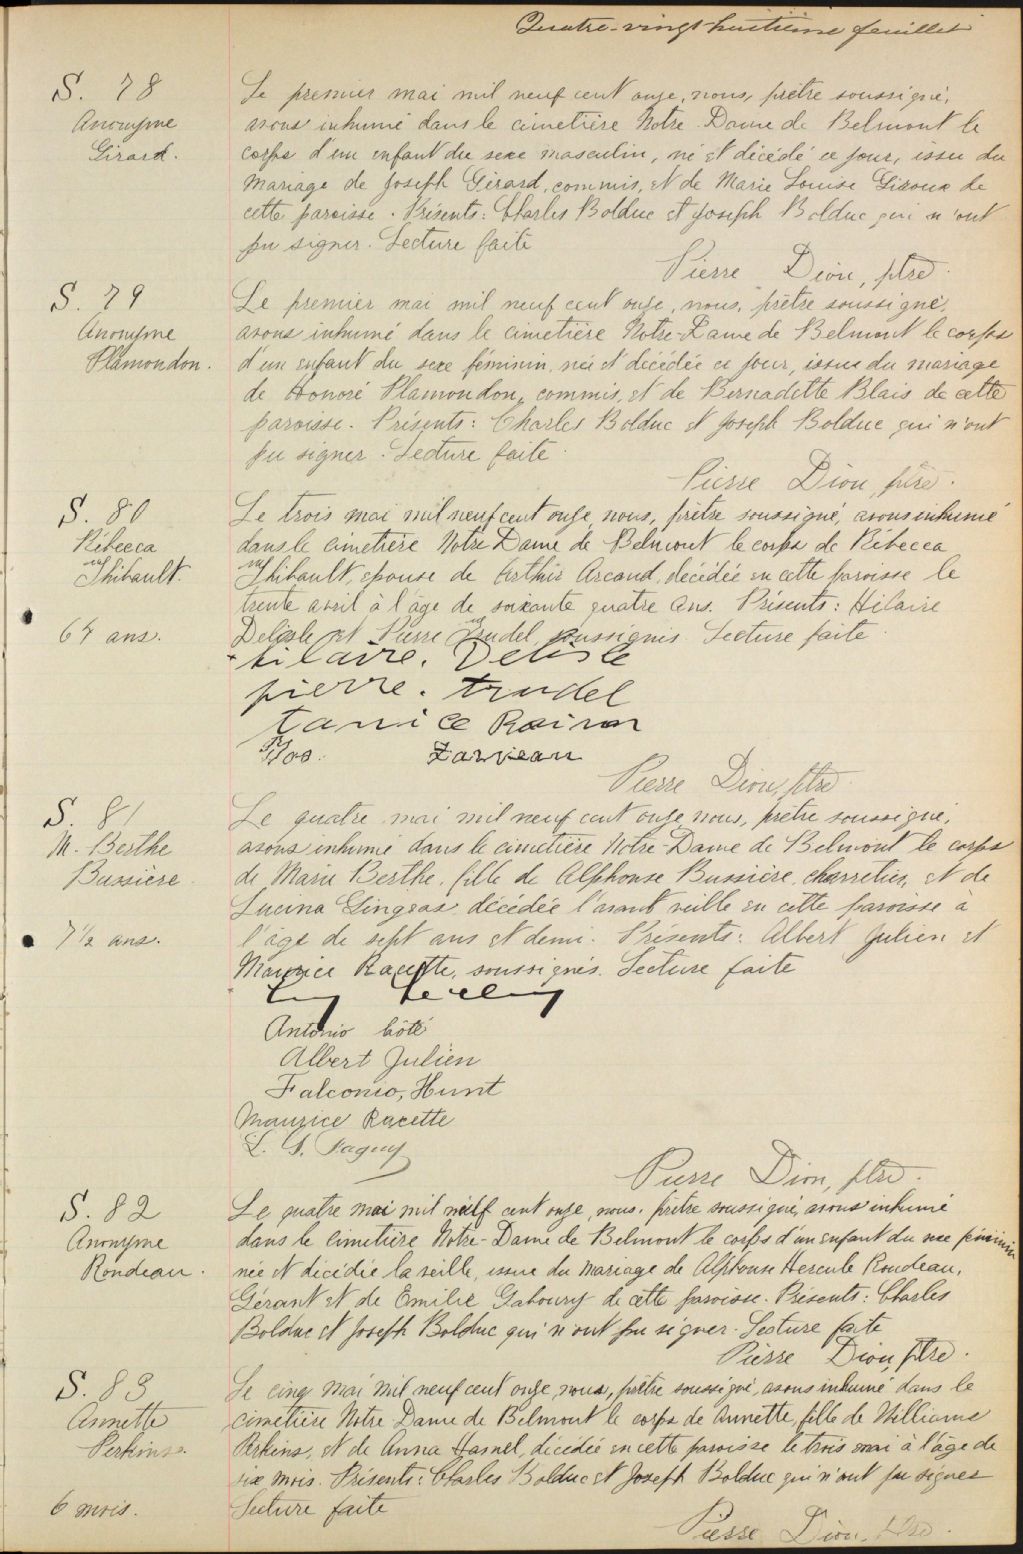 Quatre-vingt-huitième feuillet
S. 78
Anonyme
Girard.
Le premier mai mil neuf cent onze, nous, prêtre soussigné,
avons inhumé dans le cimetière Notre-Dame de Belmont le
corps d'un enfant du sexe masculin, né et décédé ce jour, issu du
mariage de Joseph Girard, commis, et de Marie Louise Giroux de
cette paroisse. Présents: Charles Bolduc et Joseph Bolduc qui n'ont
pu signer. Lecture faite
Pierre Dion, ptre.
S. 79
Anonyme
Plamondon.
Le premier mai mil neuf cent onze, nous, prêtre soussigné,
avons inhumé dans le cimetière Notre-Dame de Belmont le corps
d'un enfant du sexe féminin, née et décédée ce jour, issue du mariage
de Honoré Plamondon, commis, et de Bernadette Blais de cette
paroisse. Présents: Charles Bolduc et Joseph Bolduc qui n'ont
pu signer. Lecture faite.
Pierre Dion, ptre.
S. 80
Rébecca
Thibault.
64 ans.
Le trois mai mil neuf cent onze, nous, prêtre soussigné, avons inhumé
dans le cimetière Notre Dame de Belmont le corps de Rébecca
Thibault, épouse de Arthur Arcand, décédée en cette paroisse le
trente avril à l'âge de soixante quatre ans. Présents: Hilaire
Delisle et Pierre Trudel, soussignés. Lecture faite.
hilaire. Delisle
pierre. trudel
Pierre Dion, ptre.
S. 81
M. Berthe
Bussière.
7 1/2 ans.
Le quatre mai mil neuf cent onze, nous, prêtre soussigné,
avons inhumé dans le cimetière Notre-Dame de Belmont le corps
de Marie Berthe, fille de Alphonse Bussière, charretier, et de
Lucina Gingras, décédée l'avant veille en cette paroisse à
l'âge de sept ans et demi. Présents: Albert Julien et
Maurice Racette, soussignés. Lecture faite
Antonio Côté
Albert Julien
Falconio, Hunt
Maurice Racette
Pierre Dion, ptre.
S. 82
Anonyme
Rondeau.
Le quatre mai mil neuf cent onze, nous, prêtre soussigné, avons inhumé
dans le cimetière Notre-Dame de Belmont le corps d'un enfant du sexe féminin
née et décédée la veille, issue du mariage de Alphonse Hercule Rondeau,
Gérant et de Emilie Gaboury de cette paroisse. Présents: Charles
Bolduc et Joseph Bolduc qui n'ont pu signer. Lecture faite
Pierre Dion, ptre.
S. 83
Annette
Perkins.
6 mois.
Le cinq mai mil neuf cent onze, nous, prêtre soussigné, avons inhumé dans le
cimetière Notre Dame de Belmont le corps de Annette, fille de Williams
Perkins, et de Anna Hamel, décédée en cette paroisse le trois mai à l'âge de
six mois. Présents: Charles Bolduc et Joseph Bolduc qui n'ont pu signer
Lecture faite
Pierre Dion, ptre.